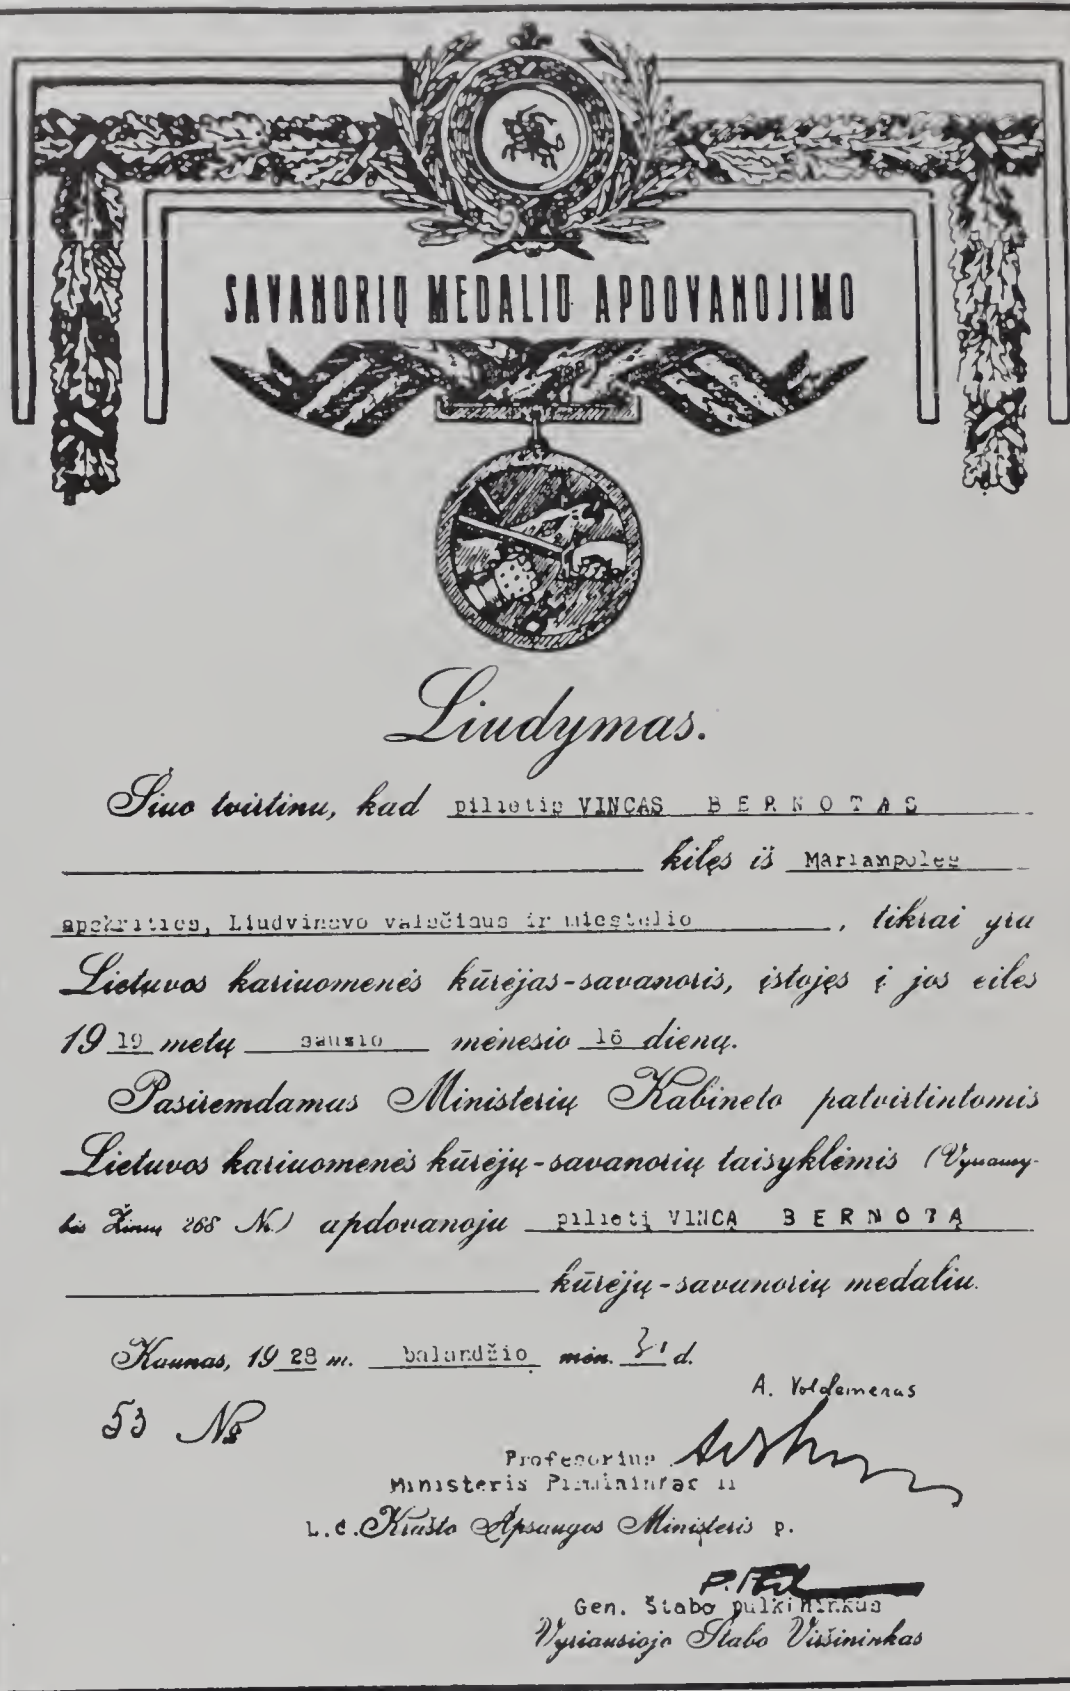 SAVANORIŲ MEDALIU APDOVANOJIMO
Liudymas.
Šiuo tvirtinu, kad pilietis VINCAS BERNOTAS
kilęs iš Mariampolės
apskrities, Liudvinavo valsčiaus ir miestelio, tikrai yra
Lietuvos kariuomenės kūrėjas-savanoris, įstojęs į jos eiles
19 19 metų sausio mėnesio 16 dieną.
Pasiremdamas Ministerių Kabineto patvirtintomis
Lietuvos kariuomenės kūrėjų-savanorių taisyklėmis (Vyriausy-
bės Žinių 268 №) apdovanoju pilietį VINCĄ BERNOTĄ
kūrėjų-savanorių medaliu.
Kaunas, 19 28 m. balandžio mėn. d.
A. Voldemeras
53 №
Profesorius
Ministeris Pirmininkas ir
L.e. Krašto Apsaugos Ministeris p.
Gen. Štabo pulkininkas
Vyriausiojo Štabo Viršininkas